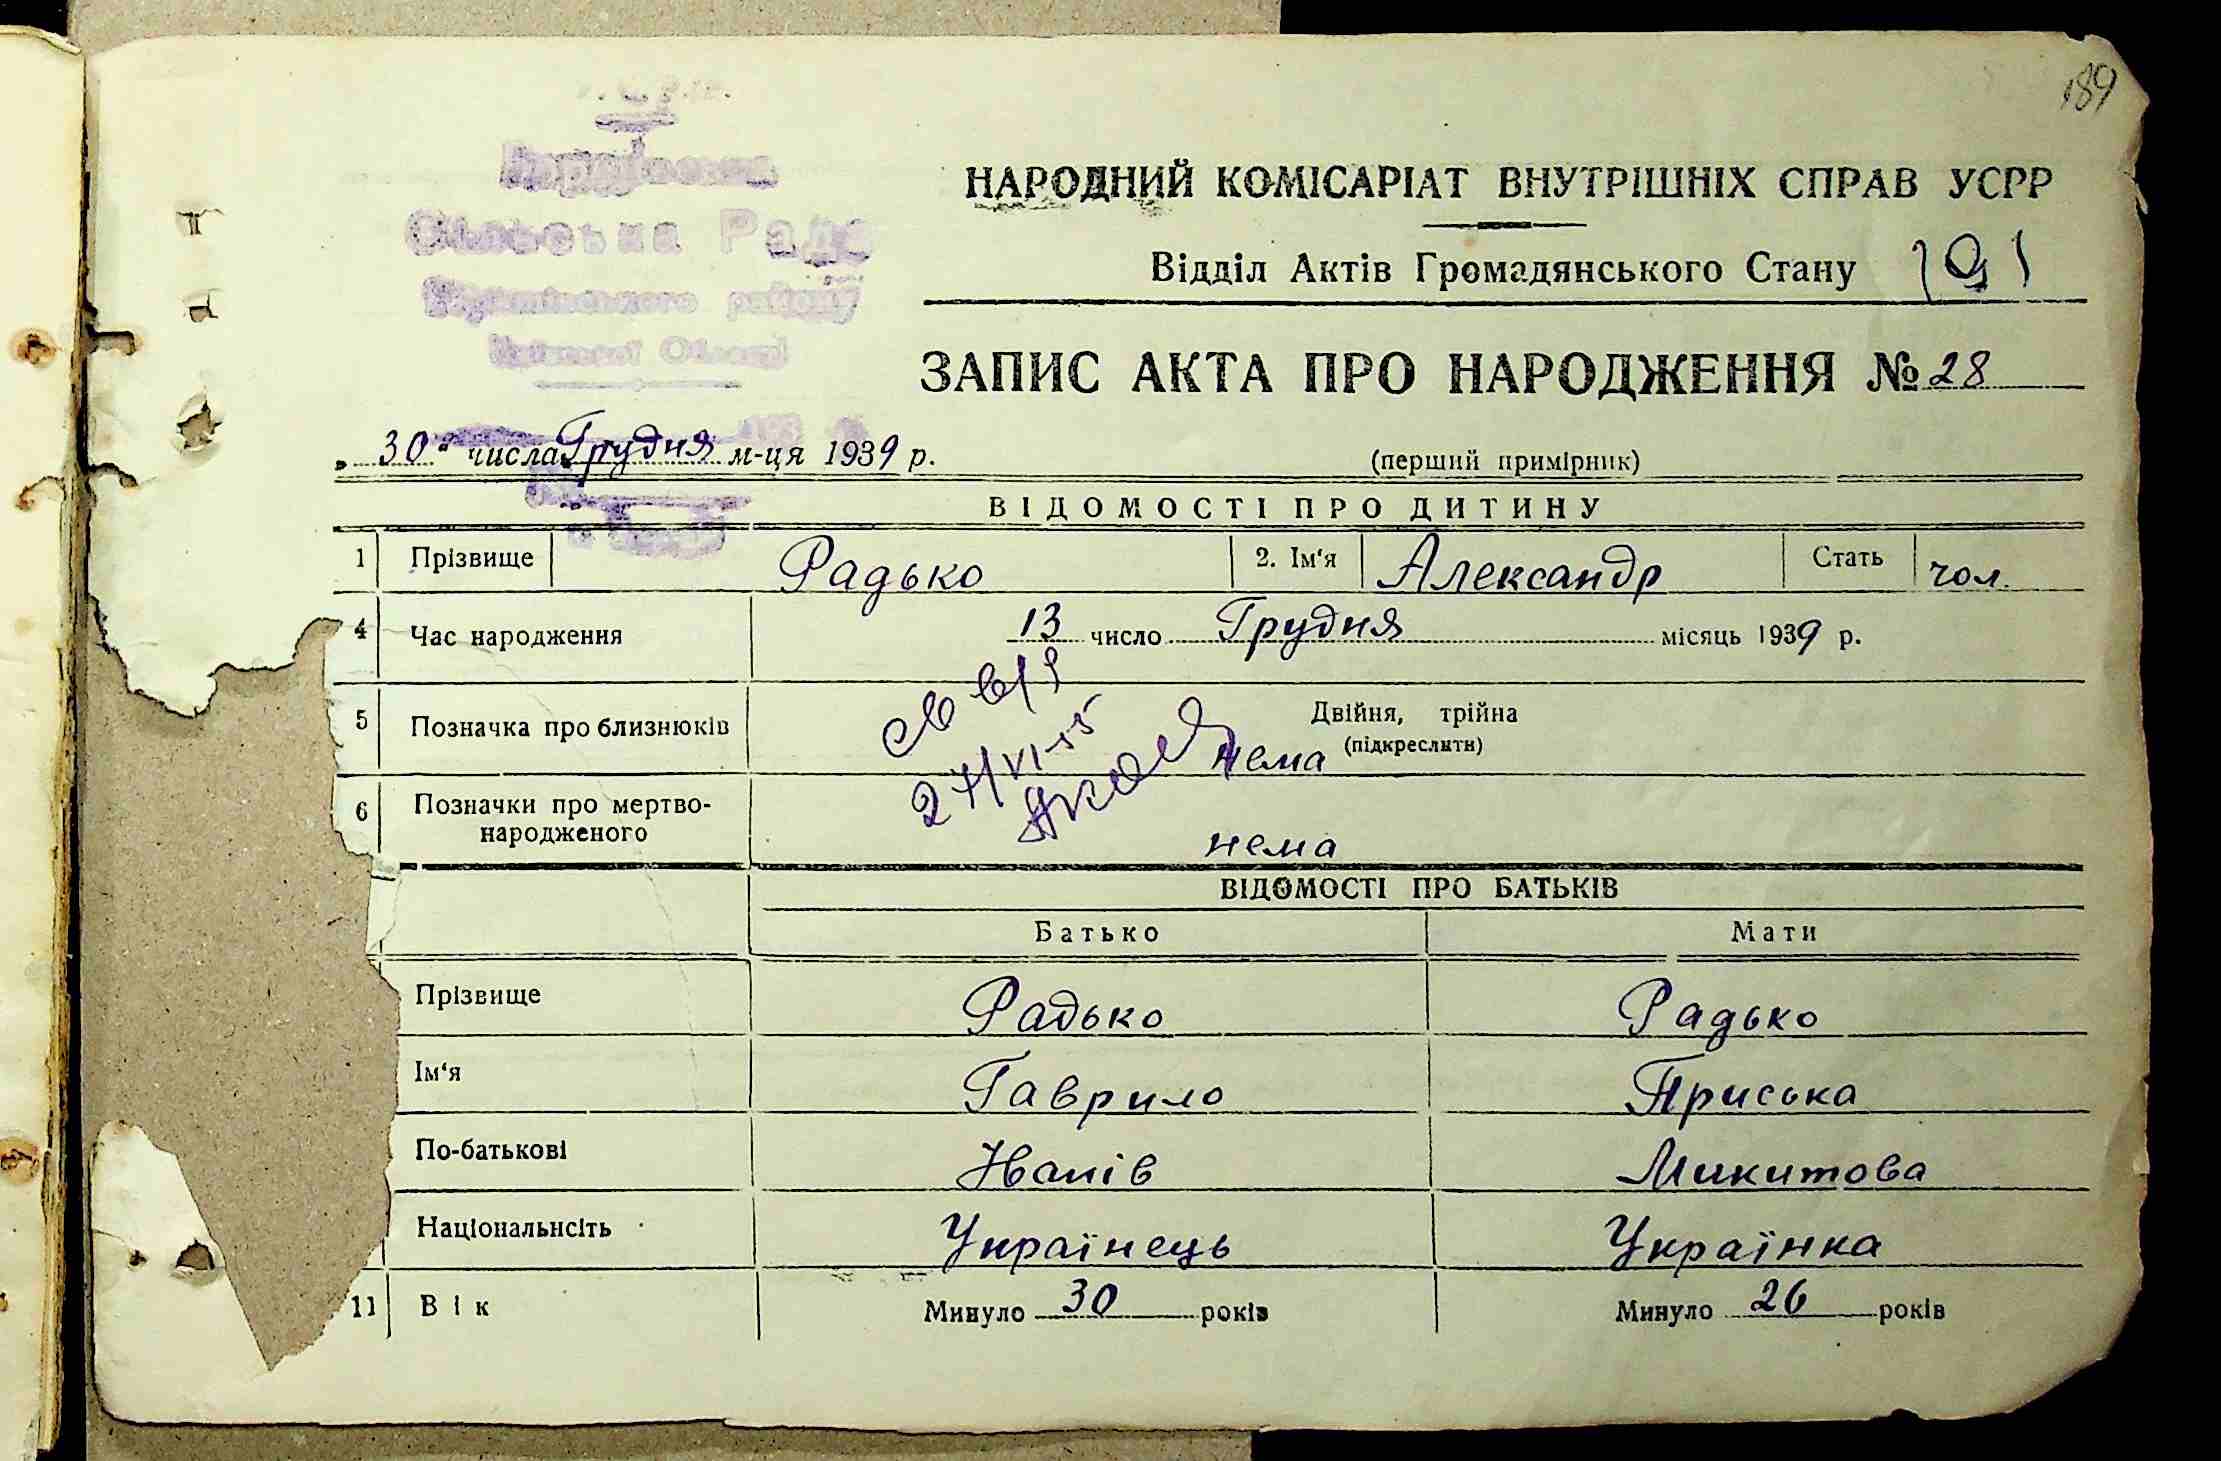 189
Сільська Рада
району
НАРОДНИЙ КОМІСАРІАТ ВНУТРІШНІХ СПРАВ УСРР
Відділ Актів Громадянського Стану 191
ЗАПИС АКТА ПРО НАРОДЖЕННЯ № 28
„ 30 “ числа Грудня м-ця 1939 р. (перший примірник)
ВІДОМОСТІ ПРО ДИТИНУ
1 Прізвище Радько 2. Ім'я Александр Стать чол.
4 Час народження 13 число Грудня місяць 1939 р.
5 Позначка про близнюків Двійня, трійна
(підкреслити)
нема
27/VI-55
6 Позначки про мертво-
народженого
нема
ВІДОМОСТІ ПРО БАТЬКІВ
Батько Мати
Прізвище Радько Радько
Ім'я Гаврило Приська
По-батькові Микитова
Національнсіть Українець Українка
11 Вік Минуло 30 років Минуло 26 років